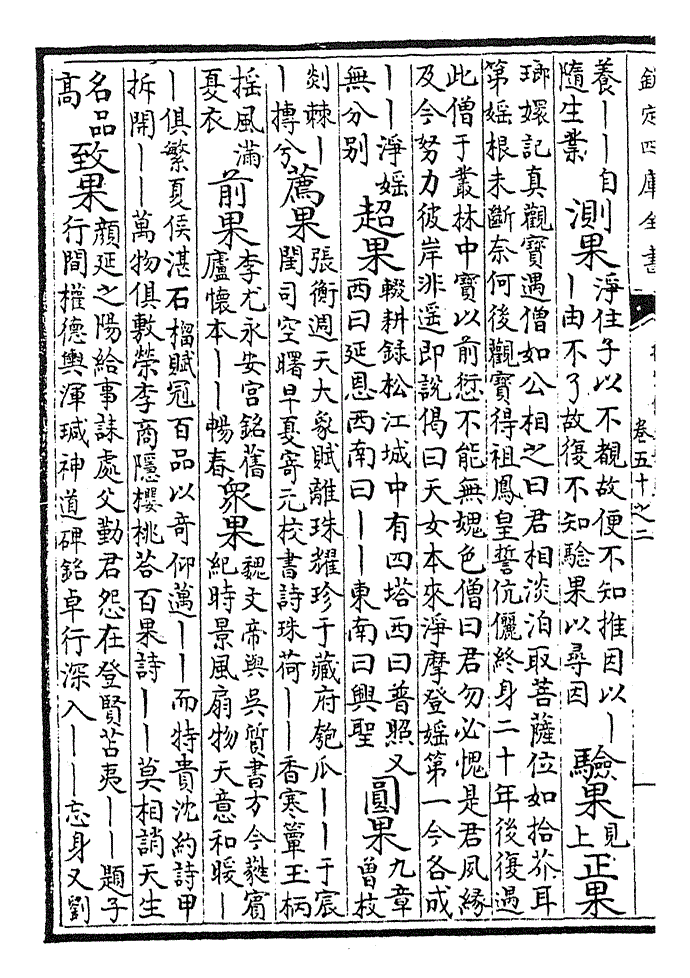 欽定四庫全書
卷五十之二
養丨丨自
隨生業
測果
淨住子以不覩故便不知推因以丨
丨由不了故復不知驗果以尋因
驗果
見
上
正果
瑯嬛記真觀寶遇僧如公相之曰君相淡泊取菩薩位如拾芥耳
第婬根未斷奈何後觀寶得祖鳳皇誓伉儷終身二十年後復遇
此僧于叢林中寶以前愆不能無媿色僧曰君勿必愧是君夙緣
及今努力彼岸非遥即說偈曰天女本來淨摩登婬第一今各成
丨丨淨婬
無分别
超果
輟耕録松江城中有四塔西曰普照又
西曰延恩西南曰丨丨東南曰興聖
圓果
九章
曾枝
剡棘丨
丨摶兮
薦果
張衡週天大象賦離珠耀珍于藏府匏瓜丨丨于宸
閨司空曙早夏寄元校書詩珠荷丨丨香寒簟玉柄
揺風滿
夏衣
前果
李尤永安宫銘舊
廬懷本丨丨暢春
衆果
魏文帝與吳質書方今蕤賓
紀時景風扇物天意和暖丨
丨俱繁夏侯湛石榴賦冠百品以奇仰邁丨丨而特貴沈約詩甲
拆開丨丨萬物俱敷榮李商隱櫻桃荅百果詩丨丨莫相誚天生
名品
高
致果
顔延之陽給事誄處父勤君怨在登賢苫夷丨丨題子
行間權德輿渾瑊神道碑銘卓行深入丨丨忘身又劉